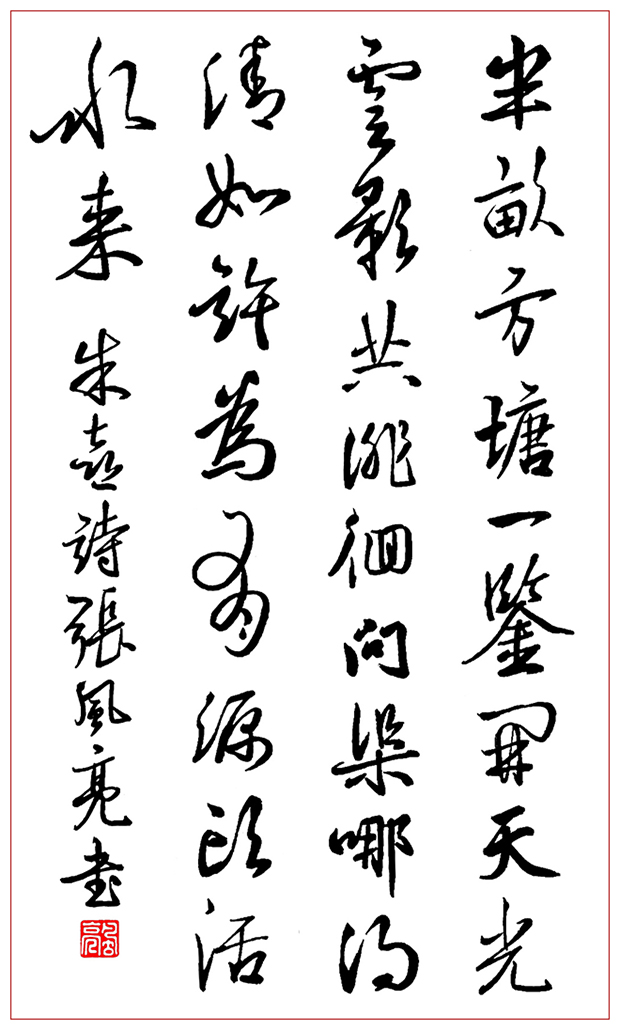 半畝方塘一鑒開天光
雲影共徘徊問渠哪得
清如許為有源頭活
水來 朱熹詩張風亮書
風亮